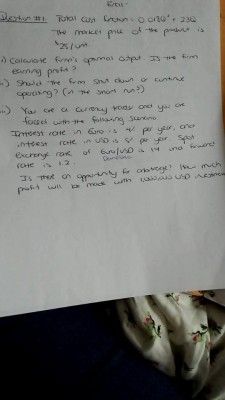 Question #1. Total Cost function:
The market price of the product is
$25/unit.
i) Calculate firm's optimal output. Is the firm
earning profit?
ii) Should the firm shut down or continue
operating? (in the short run?)
iii) You are a currency trader and you are
faced with the following scenario.
Interest rate in Euro is 4% per year, and
interest rate in USD is per year. Spot
exchange rate of Euro/USD is 1.4 and forward
rate is 1.2.
Is there an opportunity for arbitrage? How much
profit will be made with 1,000,000 USD investment